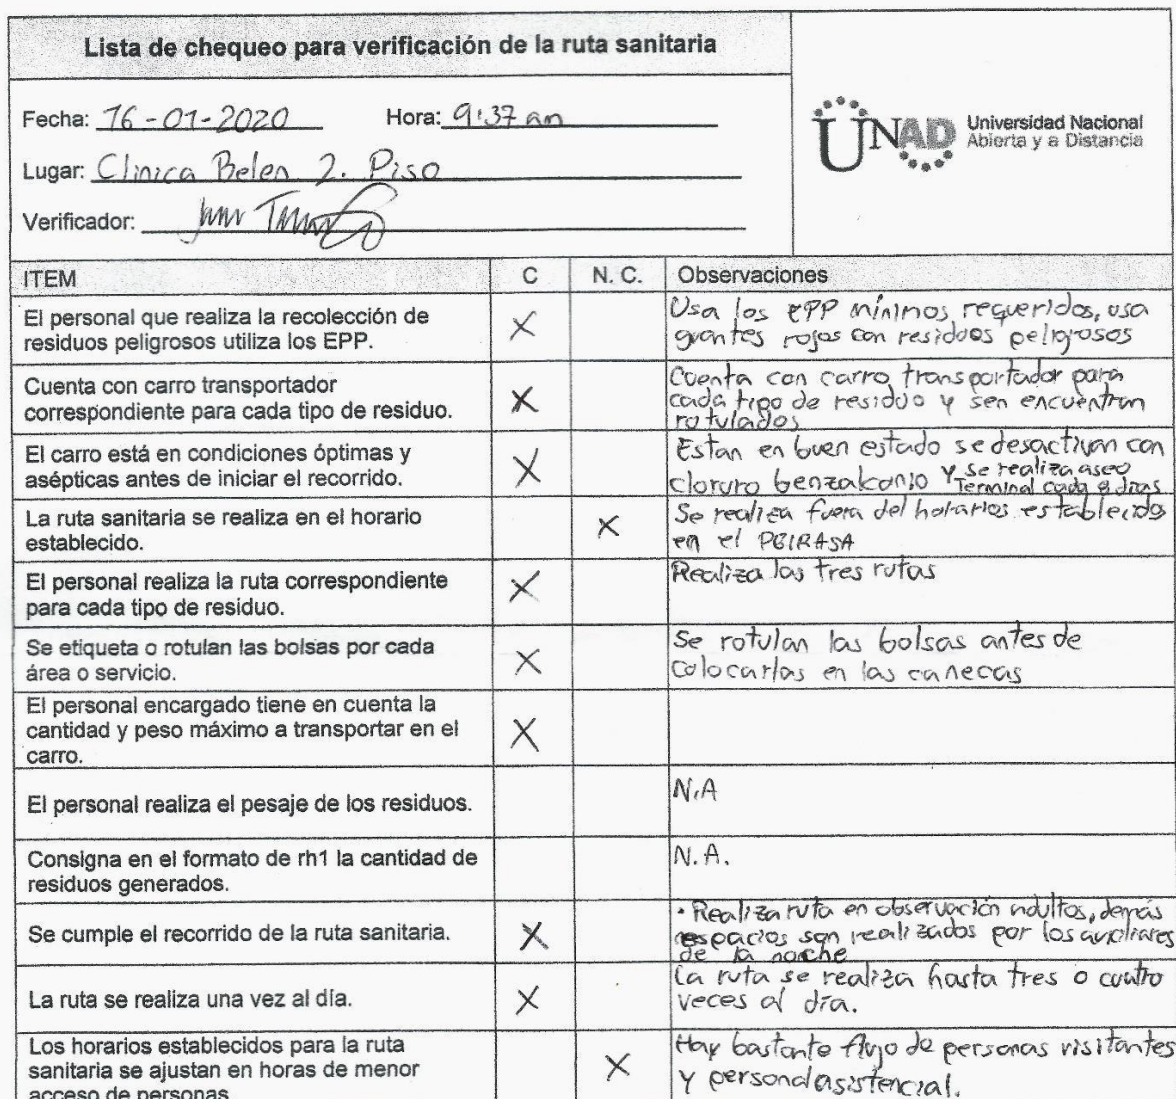 Lista de chequeo para verificación de la ruta sanitaria
Fecha: 16-01-2020 Hora: 9:37 am
Lugar: Clinica Belen 2. Piso
Verificador:
UNAD Universidad Nacional
Abierta y a Distancia
ITEM C N. C. Observaciones
El personal que realiza la recolección de
residuos peligrosos utiliza los EPP.
X
Usa los EPP mínimos requeridos, usa
guantes rojos con residuos peligrosos
Cuenta con carro transportador
correspondiente para cada tipo de residuo.
X
Cuenta con carro transportador para
cada tipo de residuo y sen encuentran
rotulados
El carro está en condiciones óptimas y
asépticas antes de iniciar el recorrido.
X
Estan en buen estado se desactivan con
cloruro benzalkonio y se realiza aseo
Terminal cada 8 dias
La ruta sanitaria se realiza en el horario
establecido.
X
Se realiza fuera del horarios establecido
en el PGIRASA
El personal realiza la ruta correspondiente
para cada tipo de residuo.
X
Realiza las tres rutas
Se etiqueta o rotulan las bolsas por cada
área o servicio.
X
Se rotulan las bolsas antes de
colocarlas en las canecas
El personal encargado tiene en cuenta la
cantidad y peso máximo a transportar en el
carro.
X
El personal realiza el pesaje de los residuos.
N.A
Consigna en el formato de rh1 la cantidad de
residuos generados.
N.A.
Se cumple el recorrido de la ruta sanitaria.
X
· Realiza ruta en observación adultos, demás
espacios son realizados por los auxiliares
de la noche
La ruta se realiza una vez al día.
X
La ruta se realiza hasta tres o cuatro
veces al dia.
Los horarios establecidos para la ruta
sanitaria se ajustan en horas de menor
acceso de personas
X
Hay bastante flujo de personas visitantes
y personal asistencial.